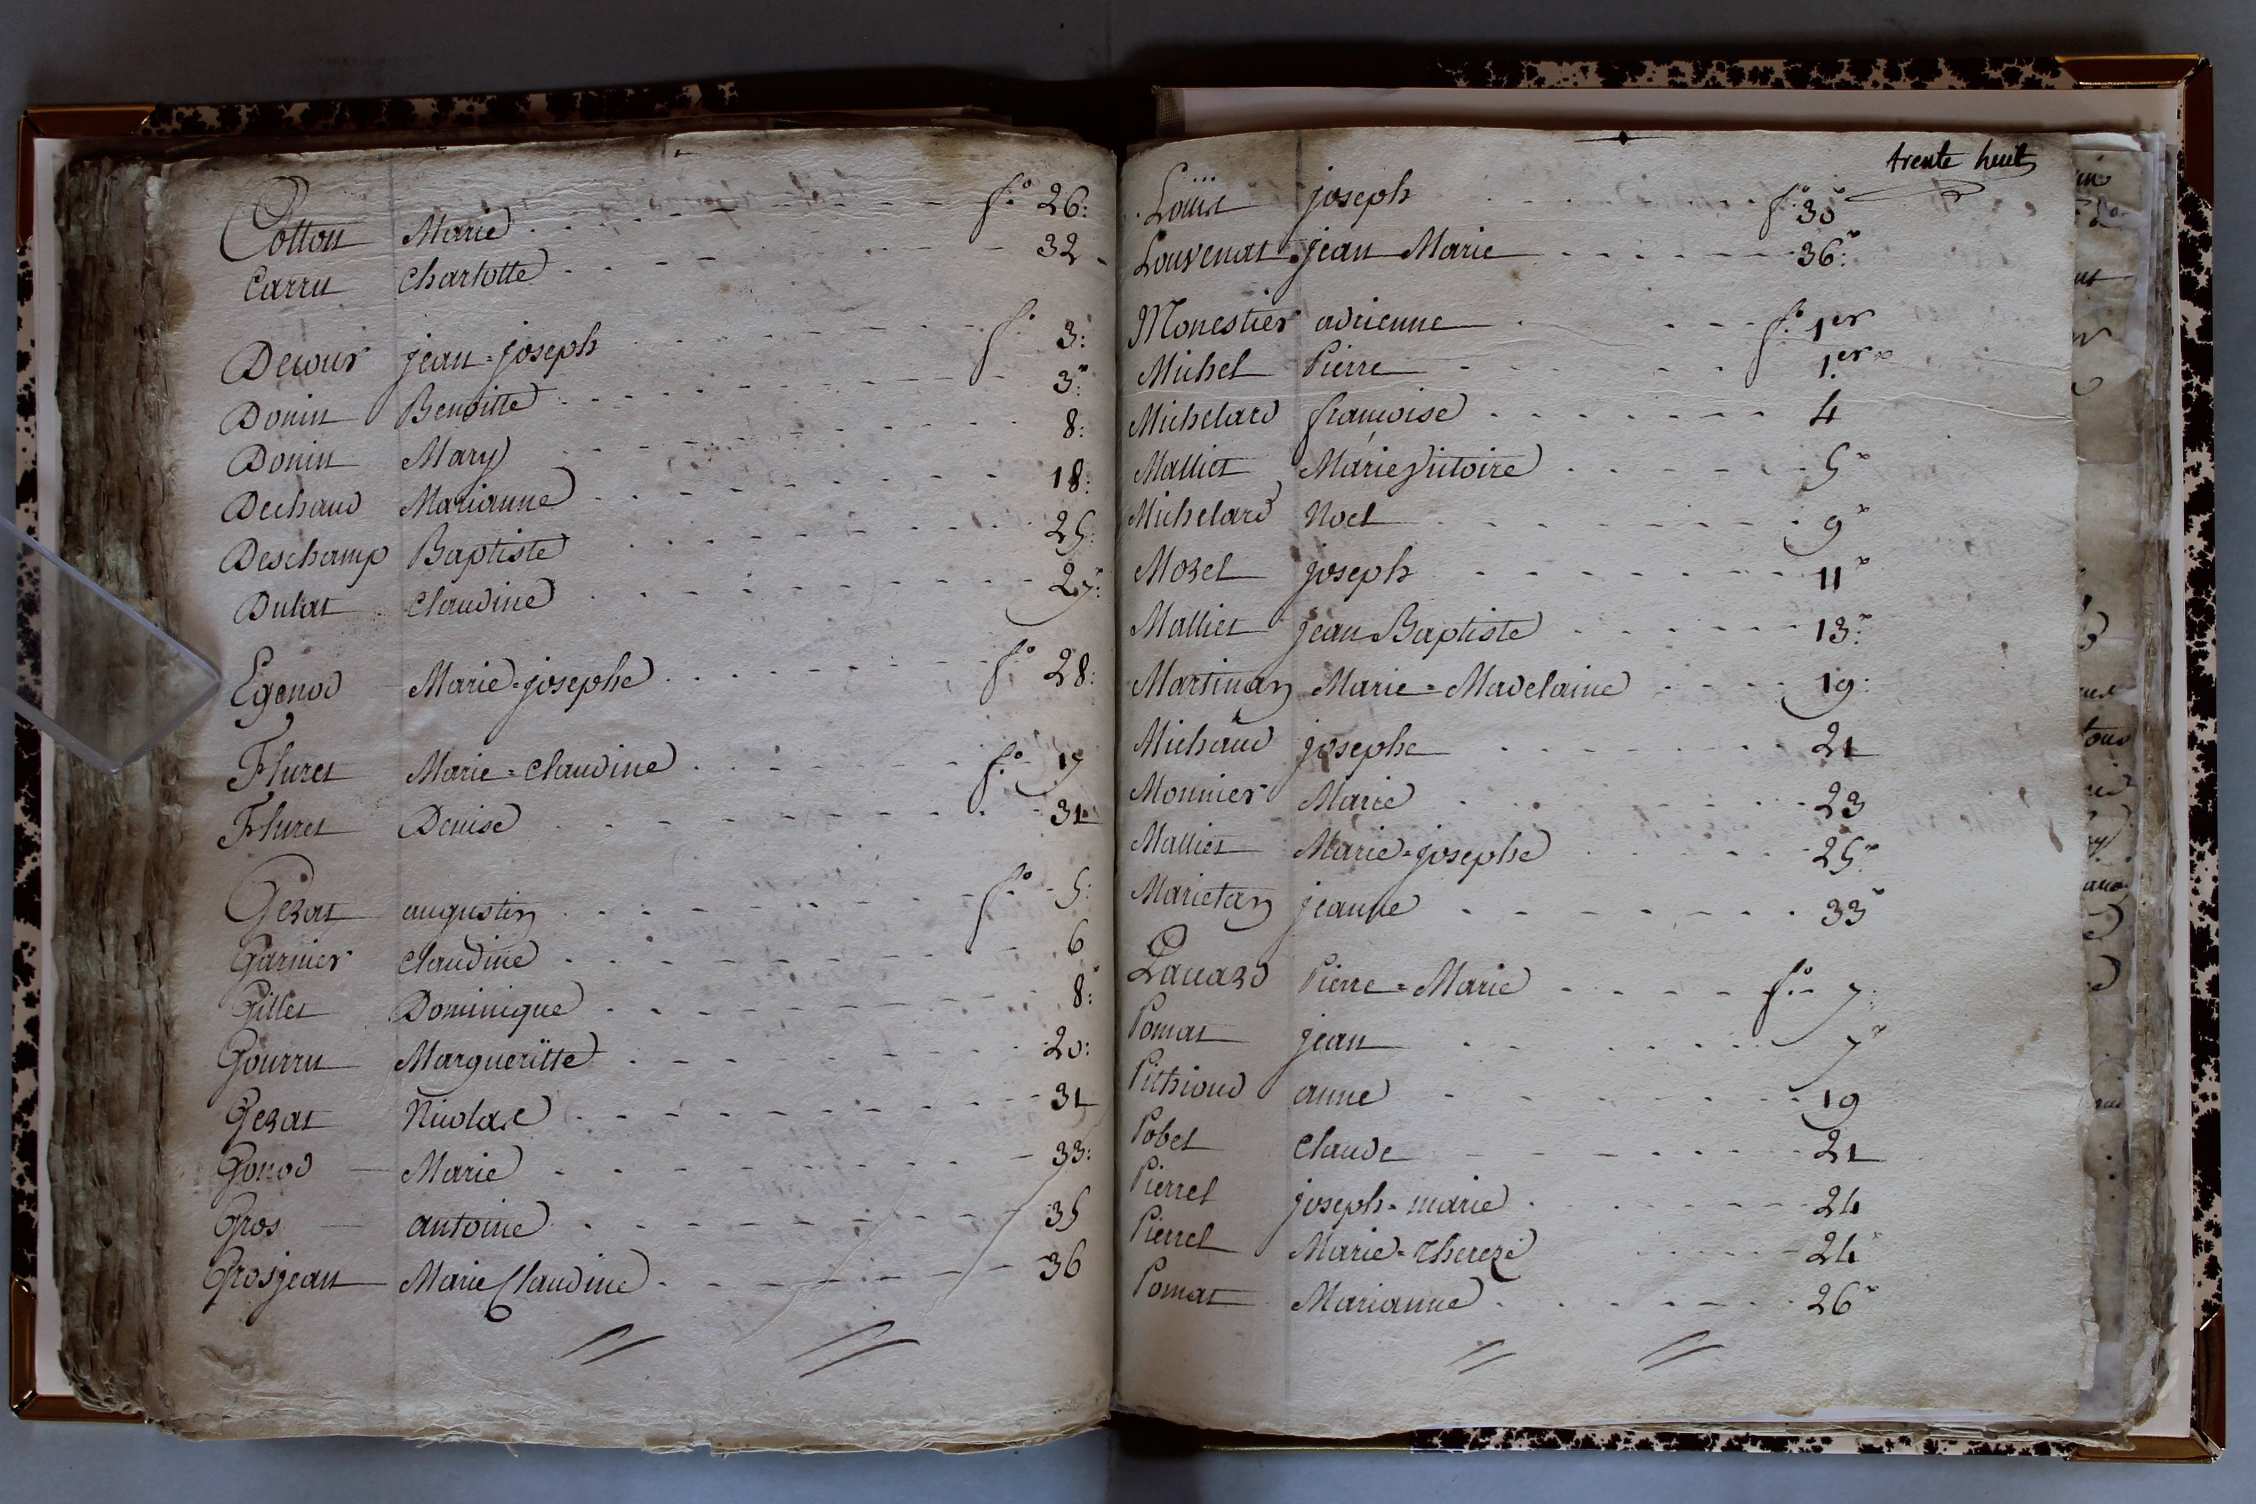 Cotton Marie f.o 26:
Carru Charlotte 32
Decour jean=joseph f.o 3:
Donin Benoitte 3.v
Donin Mary 8:
Dechaud Marianne 18:
Deschamp Baptiste 25:
Dulat Claudine 27.v
Egenod Marie=josephe f.o 28:
Fluret Marie=Claudine f.o 19
Fluret Denise 31
Gezat augustin f.o 5:
Garnier Claudine 6
Gillet Dominique 8.v
Gourru Margueritte 20:
Gezat Nicolas 31
Gonod Marie 33:
Gros antoine 35
Grosjean Marie Claudine 36
trente huit
Louis joseph f.o 30v
Louvenat jean Marie 36.v
Monestier adrienne f.o 1er
Michel Pierre 1.er v
Michelard françoise 4
Malliet Marie Victoire 5v
Michelard Noel 9v
Mozet joseph 11v
Malliet jean Baptiste 13.v
Martinan Marie=Madelaine 19:
Michaud josephe 21
Monnier Marie 23
Malliet Marie=josephe 25.v
Marietan jeanne 33v
Pierre=Marie f.o 7:
Pomat jean 7v
Pithioud anne 19
Pobel Claude 21
Pierrel joseph=marie 24
Pierrel Marie=Thereze 24v
Pomat Marianne 26v